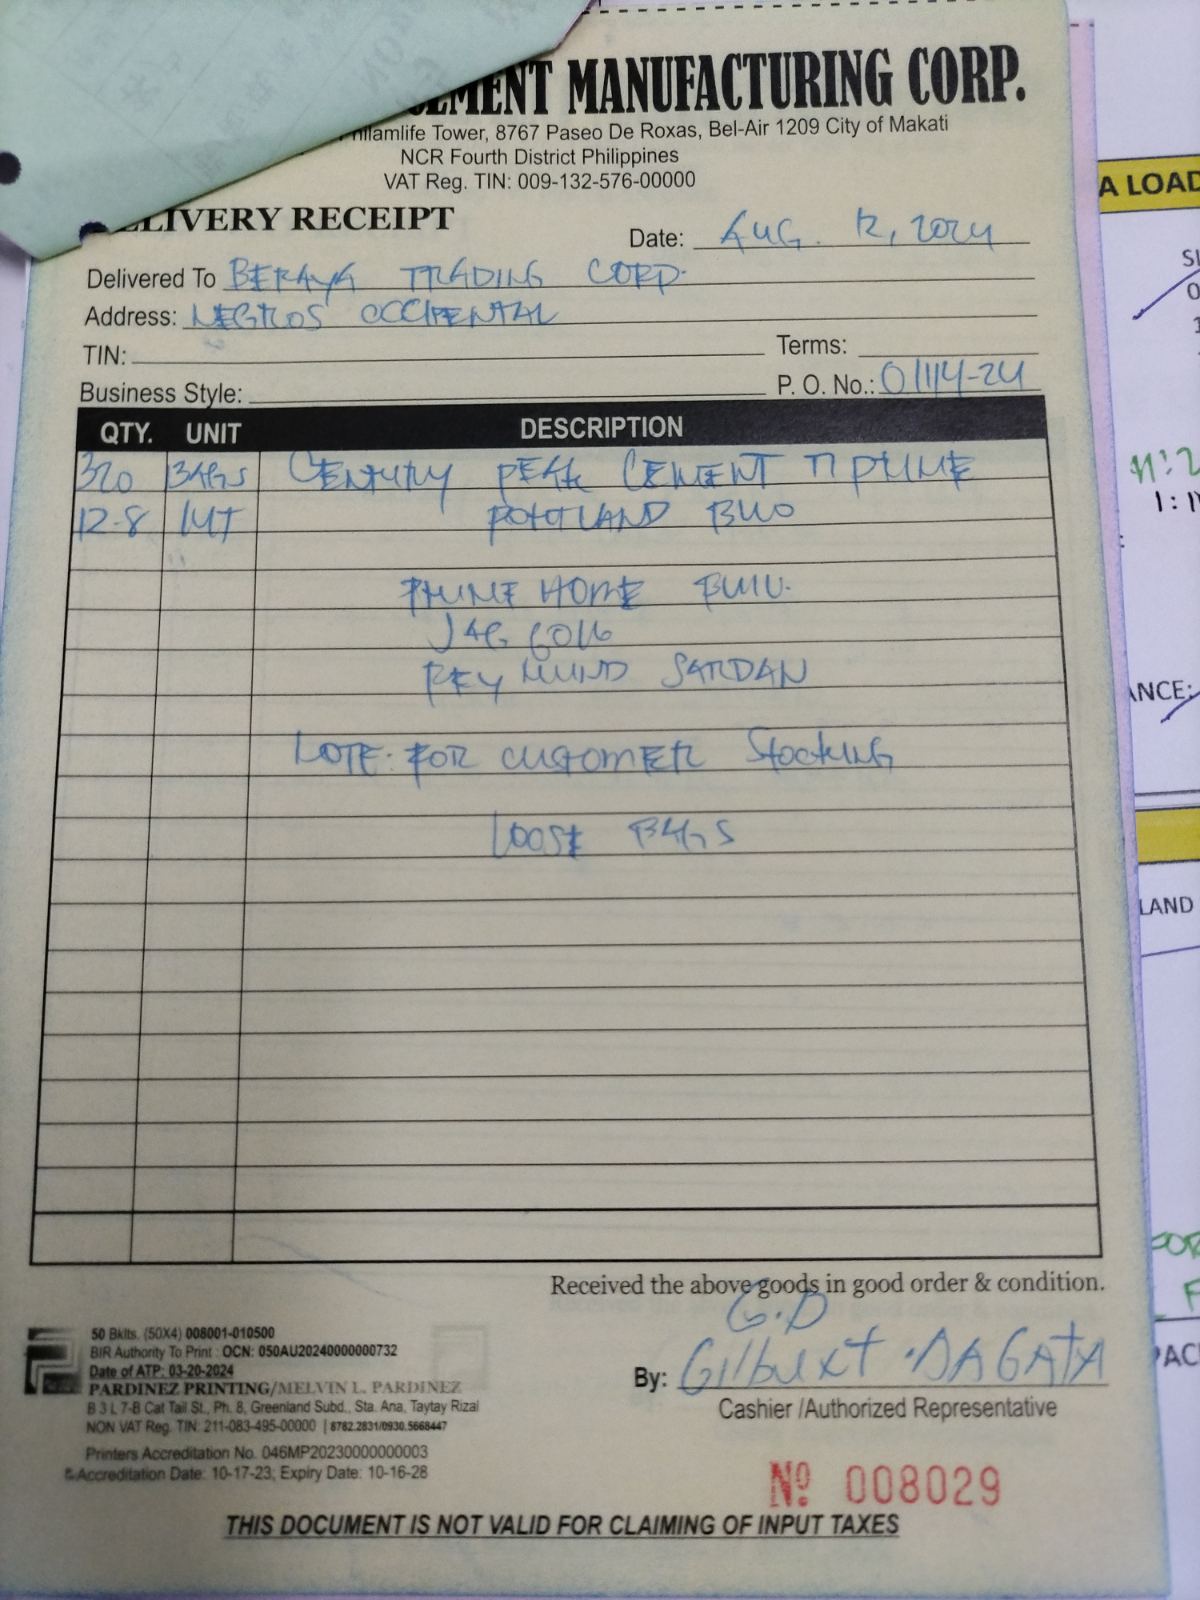 CEMENT MANUFACTURING CORP.
Philamlife Tower, 8767 Paseo De Roxas, Bel-Air 1209 City of Makati
NCR Fourth District Philippines
VAT Reg. TIN: 009-132-576-00000
DELIVERY RECEIPT
Date: AUG. 12, 2024
Delivered To BERAYA TRADING CORP.
Address: NEGROS OCCIDENTAL
TIN:
Terms:
Business Style:
P. O. No.: 01114-24
QTY. UNIT DESCRIPTION
320 BAGS CENTURY PEAK CEMENT T1 PRIME
12.8 MT PORTLAND
PRIME HOME
JAG 6016
REYMUND SARDAN
NOTE: FOR CUSTOMER Stocking
LOOSE BAGS
Received the above goods in good order & condition.
G.D
By: Gilbert DAGATA
Cashier /Authorized Representative
50 Bklts. (50X4) 008001-010500
BIR Authority To Print : OCN: 050AU20240000000732
Date of ATP: 03-20-2024
PARDINEZ PRINTING/MELVIN L. PARDINEZ
B 3 L 7-B Cat Tail St., Ph. 8, Greenland Subd., Sta. Ana, Taytay Rizal
NON VAT Reg. TIN: 211-083-495-00000 | 8782.2831/0930.5668447
Printers Accreditation No. 046MP20230000000003
Accreditation Date: 10-17-23; Expiry Date: 10-16-28
Nº 008029
THIS DOCUMENT IS NOT VALID FOR CLAIMING OF INPUT TAXES
A LOAD
LAND